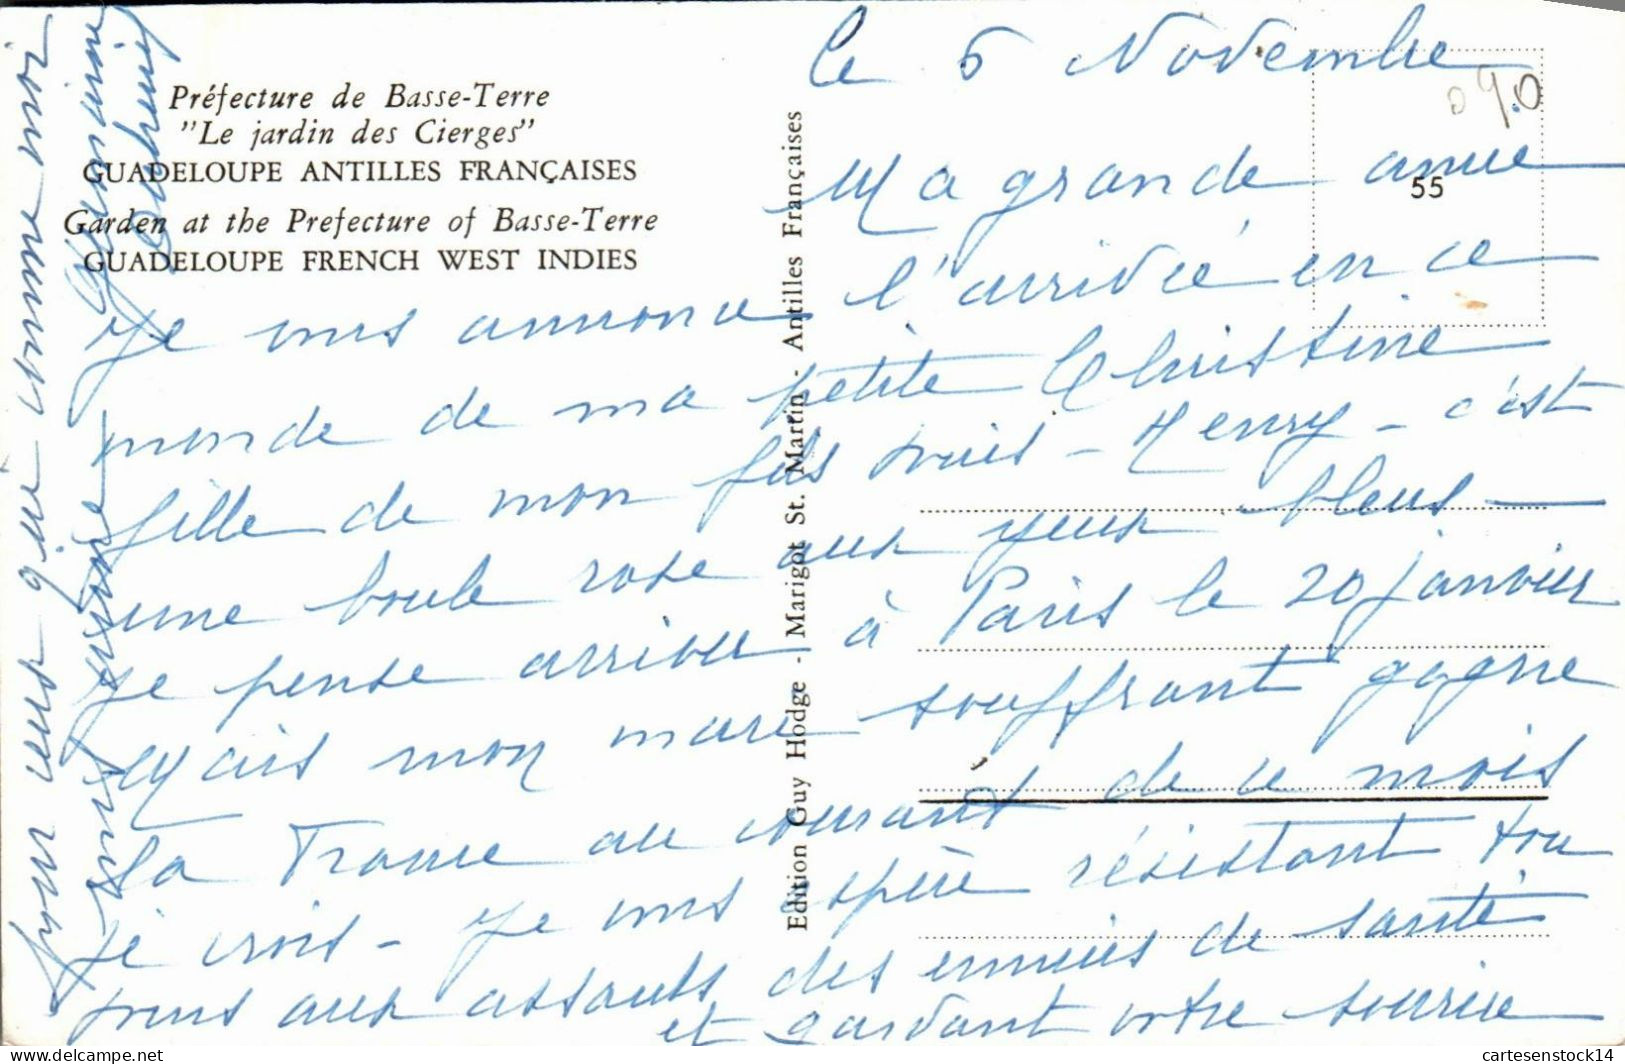 Préfecture de Basse-Terre
"Le jardin des Cierges"
GUADELOUPE ANTILLES FRANÇAISES
Garden at the Prefecture of Basse-Terre
GUADELOUPE FRENCH WEST INDIES
Edition Guy Hodge - Marigot St. Martin - Antilles Françaises
55
0,90
le 5 Novembre
Ma grande amie
Je vous annonce l'arrivée en ce
monde de ma petite Christine
fille de mon fils Henry - c'est
une boule rose aux yeux bleus -
Je pense arriver à Paris le 20 janvier
Mais mon mari souffrant gagne
la France au courant de ce mois
je crois - Je vous espère résistant tou
jours aux assauts des ennuis de santé
et gardant votre sourire
cartesenstock14